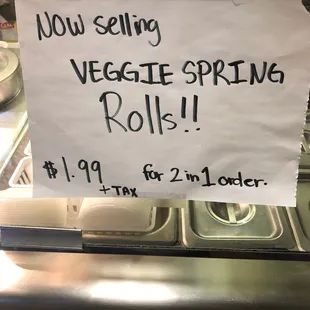 Now selling
VEGGIE SPRING
Rolls!!
$1.99 for 2 in 1 order.
+TAX